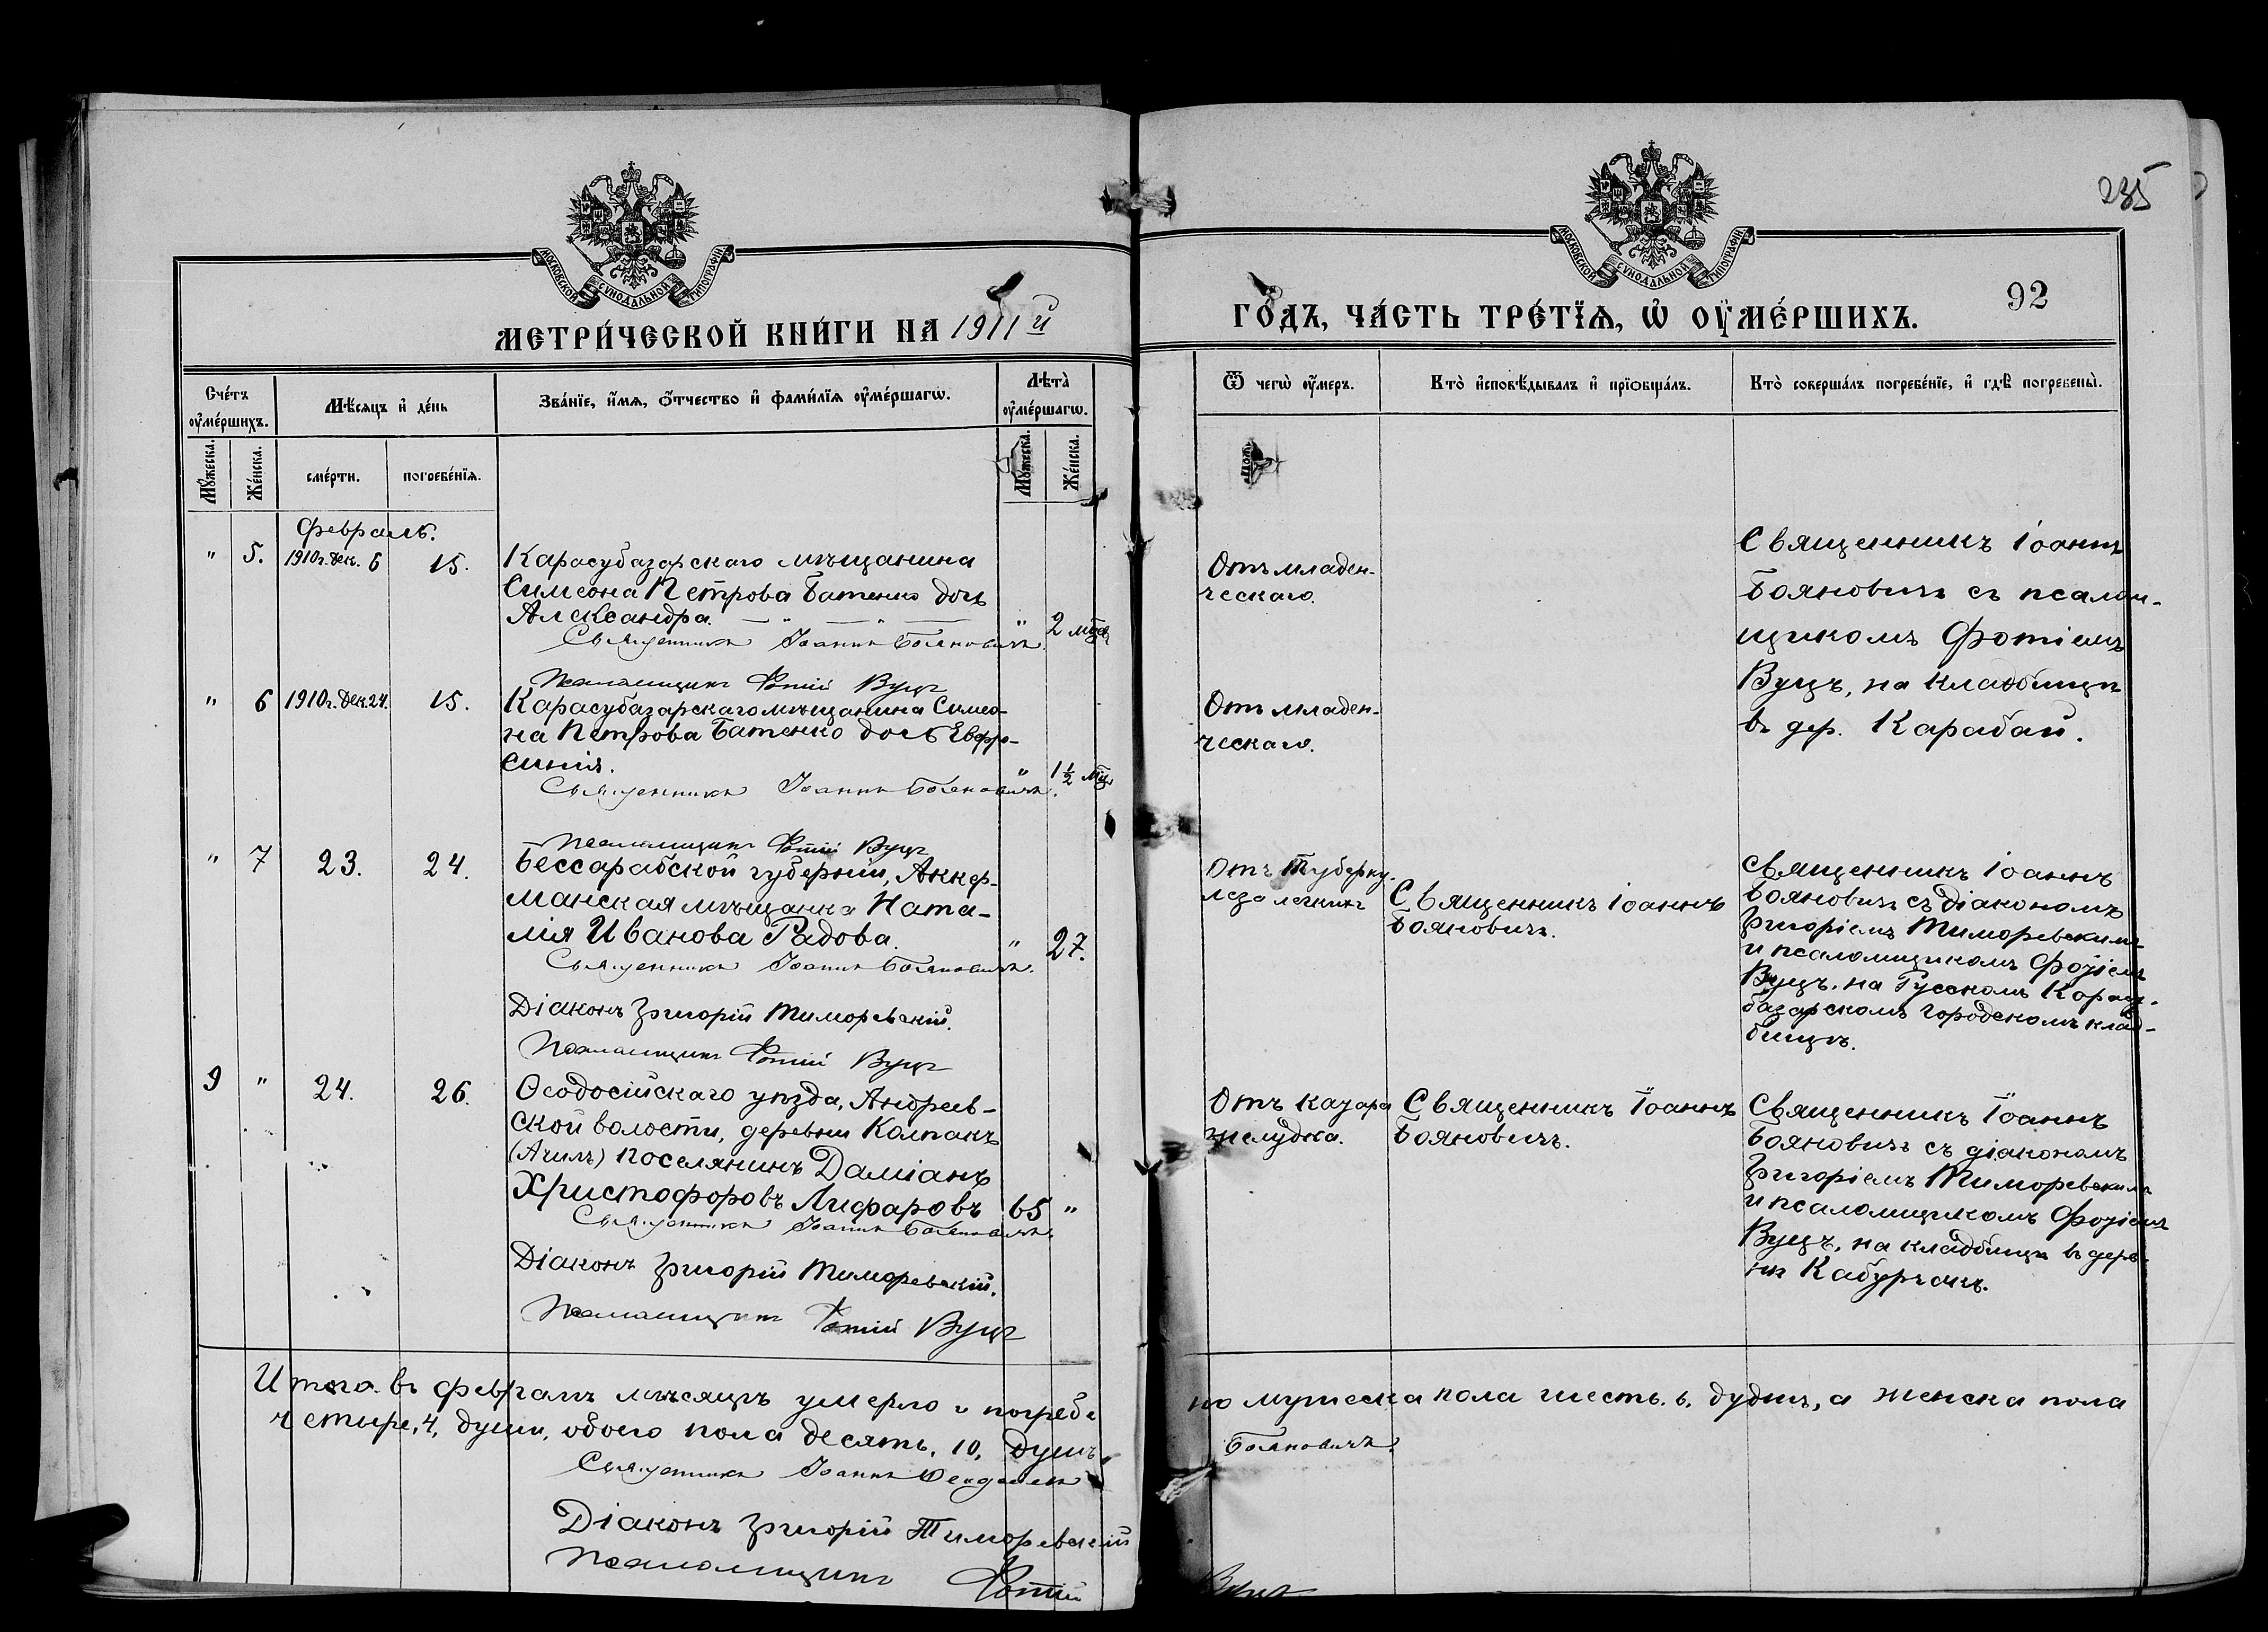 235
92
МОСКОВСКОЙ СѴНОДАЛЬНОЙ ТИПОГРАФІИ
МОСКОВСКОЙ СѴНОДАЛЬНОЙ ТИПОГРАФІИ
МЕТРИ́ЧЕСКОЙ КНИ́ГИ НА 1911 й
ГО́ДЪ, ЧА́СТЬ ТРЕ́ТЇѦ, Ѡ҆ ОУ҆МЕ́РШИХЪ.
Сче́тъ оу҆ме́ршихъ.
Мѣ́сяцъ и҆ де́нь
Зва́нїе, и҆́мѧ, ѻ҆́тчество и҆ фами́лїѧ оу҆ме́ршагѡ.
Лѣта̀ оу҆ме́ршагѡ.
Ѿ чегѡ̀ оу҆́меръ.
Кто̀ и҆сповѣ́дывалъ и҆ прїѡбща́лъ.
Кто̀ соверша́лъ погребе́нїе, и҆ гдѣ̀ погребены̀.
Мꙋ́жеска.
Же́нска.
сме́рти.
погребе́нїѧ.
Мꙋ́жеска.
Же́нска.
Февраль.
" 5. 1910г. Дек. 6 15.
Карасубазарскаго мѣщанина
Симеона Петрова Батенко дочь
Александра. — " — " —
" 2 мѣс.
Священникъ Іоаннъ Бояновичъ.
Псаломщикъ Фотій Вуцъ
Отъ младен-
ческаго.
Священникъ Іоаннъ
Бояновичъ съ псалом-
щикомъ Фотіемъ
Вуцъ, на кладбищѣ
въ дер. Карабай.
" 6 1910г. Дек. 24. 15.
Карасубазарскаго мѣщанина Симео-
на Петрова Батенко дочь Евфро-
синія.
" 1½ мѣс.
Священникъ Іоаннъ Бояновичъ.
Псаломщикъ Фотій Вуцъ
Отъ младен-
ческаго.
" 7 23. 24.
Бессарабской губерніи, Аккер-
манская мѣщанка Ната-
лія Иванова Радова.
" 27.
Священникъ Іоаннъ Бояновичъ.
Діаконъ Григорій Тиморевскій.
Псаломщикъ Фотій Вуцъ
Отъ туберку-
леза легкихъ
Священникъ Іоаннъ
Бояновичъ.
Священникъ Іоаннъ
Бояновичъ съ діакономъ
Григоріемъ Тиморевскимъ
и псаломщикомъ Фотіемъ
Вуцъ, на Русскомъ Карасу-
базарскомъ городскомъ клад-
бищѣ.
9 " 24. 26.
Ѳеодосійскаго уѣзда, Андреев-
ской волости, деревни Колпакъ
(Ачилъ) поселянинъ Даміанъ
Христофоровъ Лифаровъ
65 "
Священникъ Іоаннъ Бояновичъ.
Діаконъ Григорій Тиморевскій.
Псаломщикъ Фотій Вуцъ
Отъ катара
желудка.
Священникъ Іоаннъ
Бояновичъ.
Священникъ Іоаннъ
Бояновичъ съ діакономъ
Григоріемъ Тиморевскимъ
и псаломщикомъ Фотіемъ
Вуцъ, на кладбищѣ въ дерев-
нѣ Кабурчакъ.
Итого въ февралѣ мѣсяцѣ умерло и погребе
но мужеска пола шесть, 6, душъ, а женска пола
четыре, 4, души, обоего пола десять, 10, душъ.
Священникъ Іоаннъ
Бояновичъ.
Діаконъ Григорій Тиморевскій
Псаломщикъ Фотій
Вуцъ